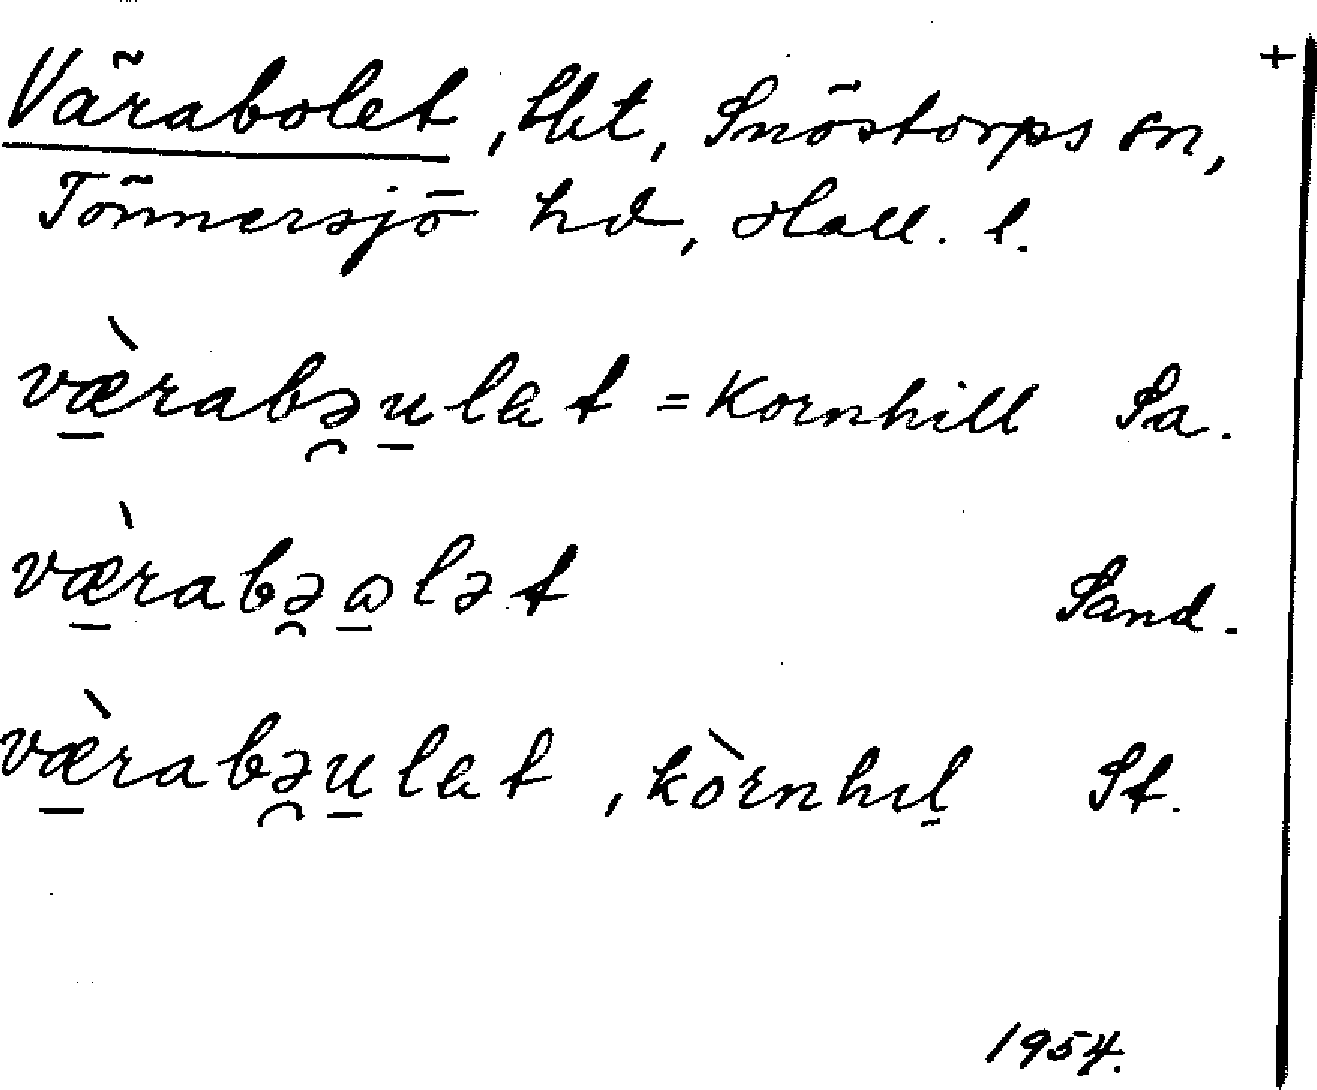 +
Värabolet, lht, Snöstorps sn,
Tönnersjö hd, Hall. l.
væ̀rabəulat = Kornhill Sa.
væ̀rabəωlət Sand.
væ̀rabəulat, kòrnhıl St.
1954.